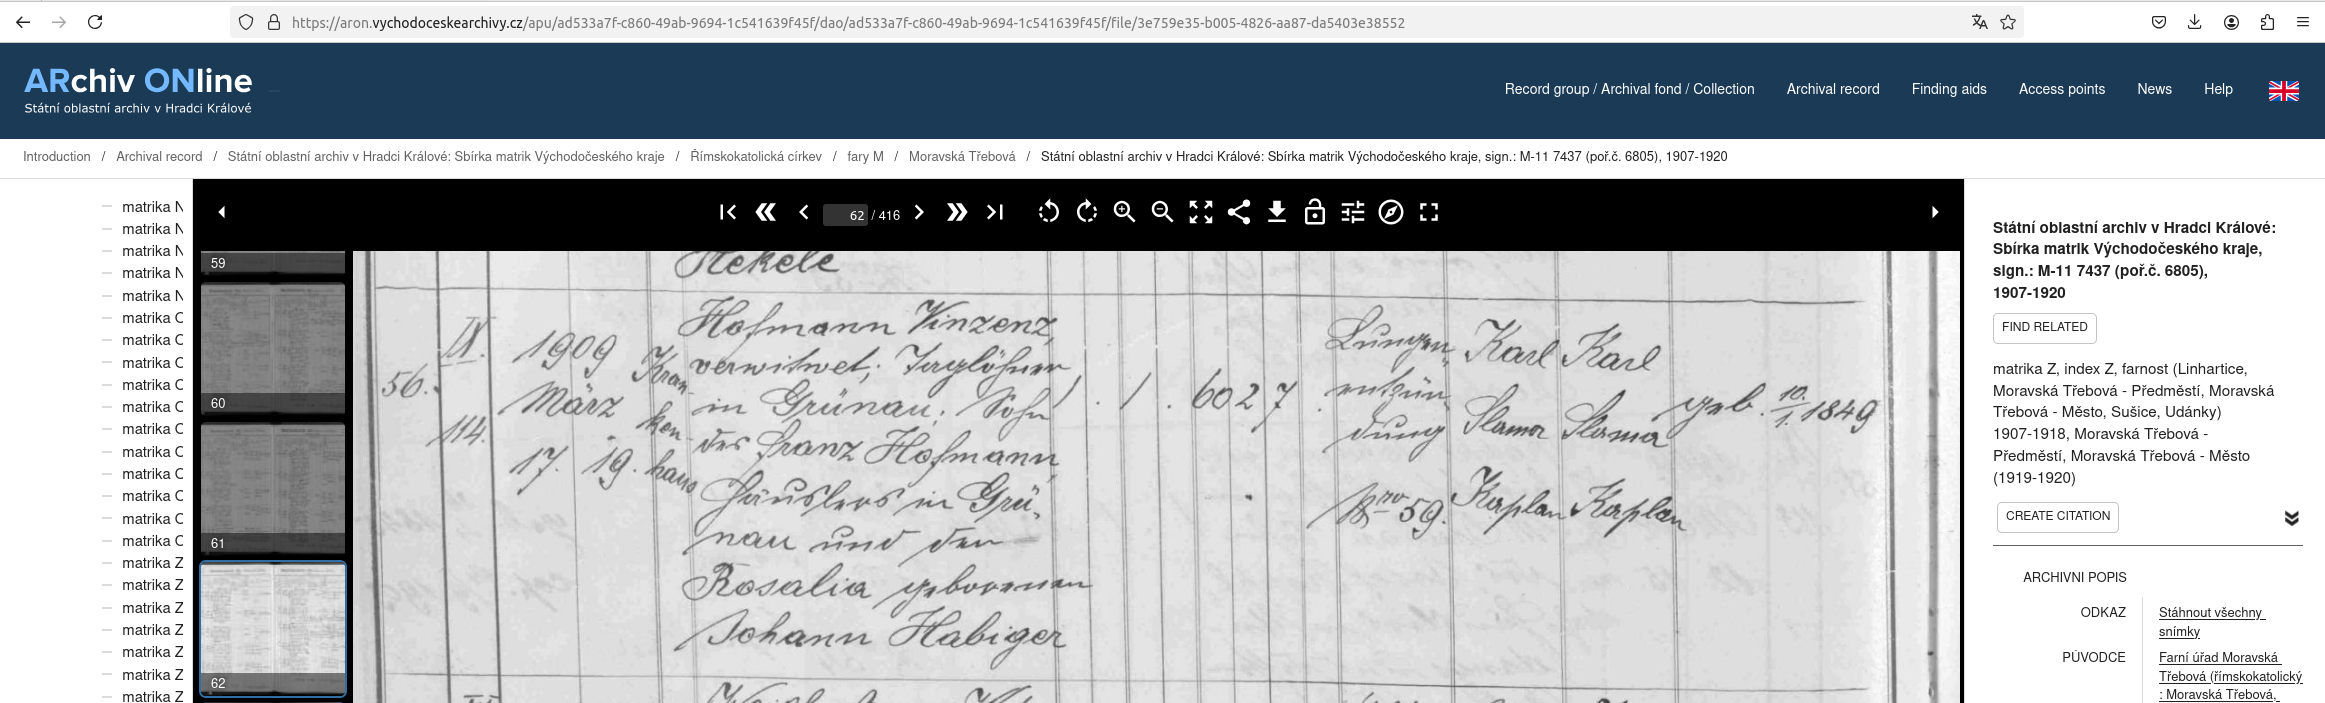 https://aron.vychodoceskearchivy.cz/apu/ad533a7f-c860-49ab-9694-1c541639f45f/dao/ad533a7f-c860-49ab-9694-1c541639f45f/file/3e759e35-b005-4826-aa87-da5403e38552
ARchiv ONline
Státní oblastní archiv v Hradci Králové
Record group / Archival fond / Collection
Archival record
Finding aids
Access points
News
Help
Introduction / Archival record / Státní oblastní archiv v Hradci Králové: Sbírka matrik Východočeského kraje / Římskokatolická církev / fary M / Moravská Třebová / Státní oblastní archiv v Hradci Králové: Sbírka matrik Východočeského kraje, sign.: M-11 7437 (poř.č. 6805), 1907-1920
matrika N
matrika N
matrika N
matrika N
matrika N
matrika O
matrika O
matrika O
matrika O
matrika O
matrika O
matrika O
matrika O
matrika O
matrika O
matrika O
matrika Z
matrika Z
matrika Z
matrika Z
matrika Z
matrika Z
matrika Z
62 / 416
59
60
61
62
Hekele
56.
IX.
114.
1909
März
17. 19.
Kran-
ken-
haus
Hofmann Vinzenz,
verwitwet, Taglöhner
in Grünau, Sohn
des Franz Hofmann,
Häuslers in Grü-
nau und der
Rosalia geborenen
Johann Habiger
1. 1. 60 2 7
Lungen-
entzün-
dung
Nro 59.
Karl
Slama
Kaplan
Karl
Slama
Kaplan
geb. 10./1. 1849
Státní oblastní archiv v Hradci Králové:
Sbírka matrik Východočeského kraje,
sign.: M-11 7437 (poř.č. 6805),
1907-1920
FIND RELATED
matrika Z, index Z, farnost (Linhartice,
Moravská Třebová - Předměstí, Moravská
Třebová - Město, Sušice, Udánky)
1907-1918, Moravská Třebová -
Předměstí, Moravská Třebová - Město
(1919-1920)
CREATE CITATION
ARCHIVNI POPIS
ODKAZ
Stáhnout všechny
snímky
PŮVODCE
Farní úřad Moravská
Třebová (římskokatolický
: Moravská Třebová,